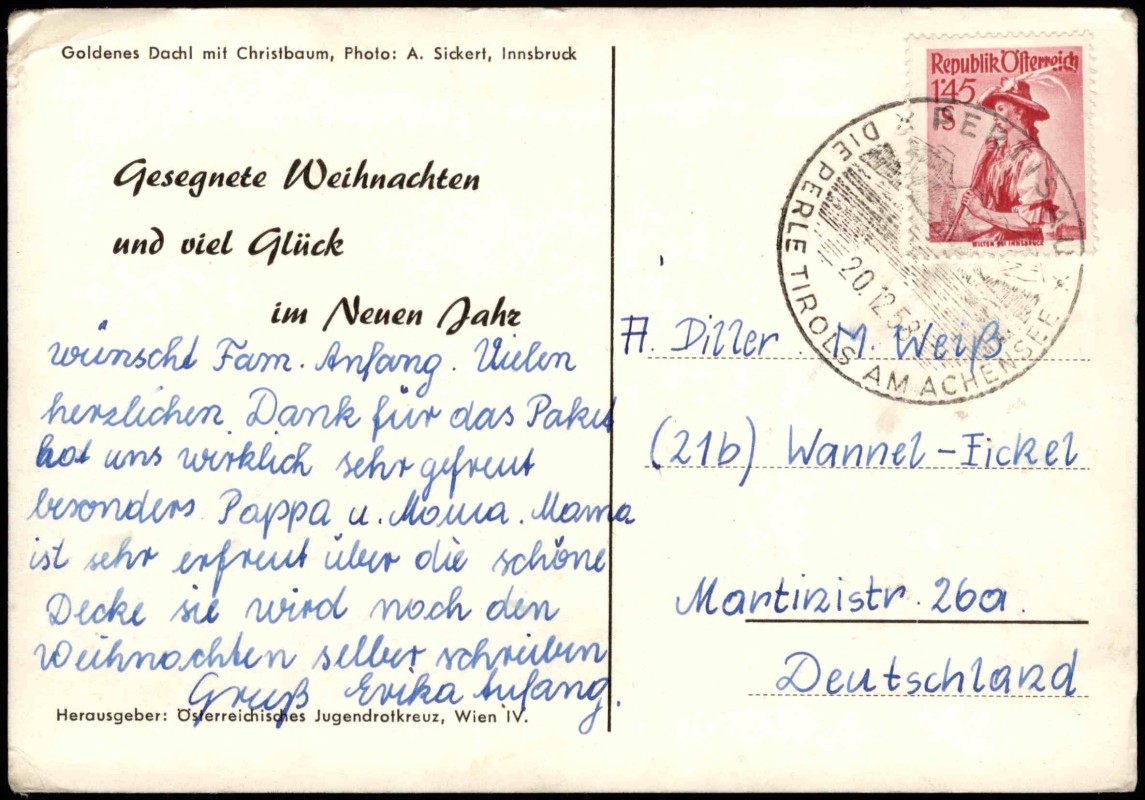 Goldenes Dachl mit Christbaum, Photo: A. Sickert, Innsbruck
Gesegnete Weihnachten
und viel Glück
im Neuen Jahr
wünscht Fam. Anfang. Vielen
herzlichen Dank für das Paket
hat uns wirklich sehr gefreut
besonders Pappa u. Mama. Mama
ist sehr erfreut über die schöne
Decke sie wird nach den
Weihnachten selber schreiben
Gruß Erika Anfang.
Herausgeber: Österreichisches Jugendrotkreuz, Wien IV.
Republik Österreich
1'45
S
WILTEN BEI INNSBRUCK
PERTISAU
DIE PERLE TIROLS AM ACHENSEE
20.12.53
A. Diller M. Weiß
(21b) Wannel-Eickel
Martinistr. 26a.
Deutschland